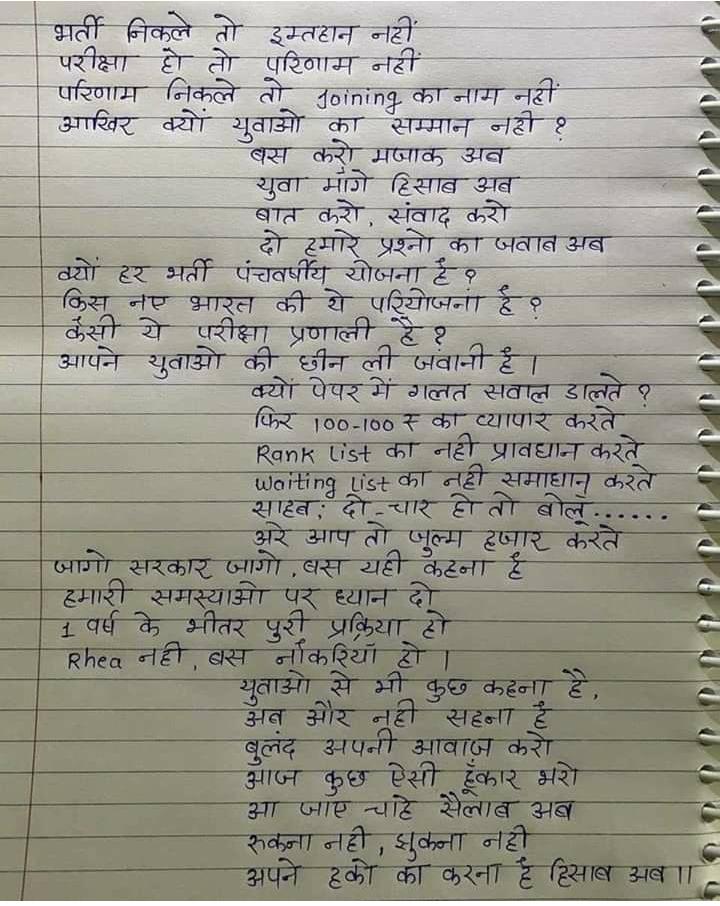 भर्ती निकले तो इम्तहान नहीं
परीक्षा हो तो परिणाम नहीं
परिणाम निकले तो Joining का नाम नहीं
आखिर क्यों युवाओ का सम्मान नही ?
बस करो मजाक अब
युवा माँगे हिसाब अब
बात करो, संवाद करो
दो हमारे प्रश्नो का जवाब अब
क्यों हर भर्ती पंचवर्षीय योजना है ?
किस नए भारत की ये परियोजना है ?
कैसी ये परीक्षा प्रणाली है ?
आपने युवाओ की छीन ली जवानी है ।
क्यों पेपर में गलत सवाल डालते ?
फिर 100-100 ₹ का व्यापार करते
Rank List का नही प्रावधान करते
Waiting List का नही समाधान करते
साहब; दो-चार हो तो बोलूँ......
अरे आप तो जुल्म हजार करते
जागो सरकार जागो, बस यही कहना है
हमारी समस्याओ पर ध्यान दो
1 वर्ष के भीतर पुरी प्रक्रिया हो
Rhea नही, बस नौकरियाँ हो ।
युवाओ से भी कुछ कहना है,
अब और नही सहना है
बुलंद अपनी आवाज करो
आज कुछ ऐसी हूँकार भरो
आ जाए चाहे सैलाब अब
रुकना नही, झुकना नही
अपने हको का करना है हिसाब अब ।।